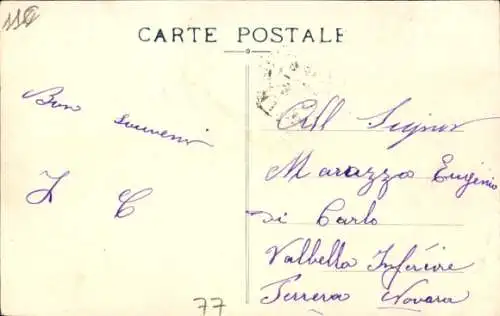 114
CARTE POSTALE
Bon
souvenir
J C
All Signor
Marazza Eugenio
di Carlo
Valbella Inferiore
Novara
77